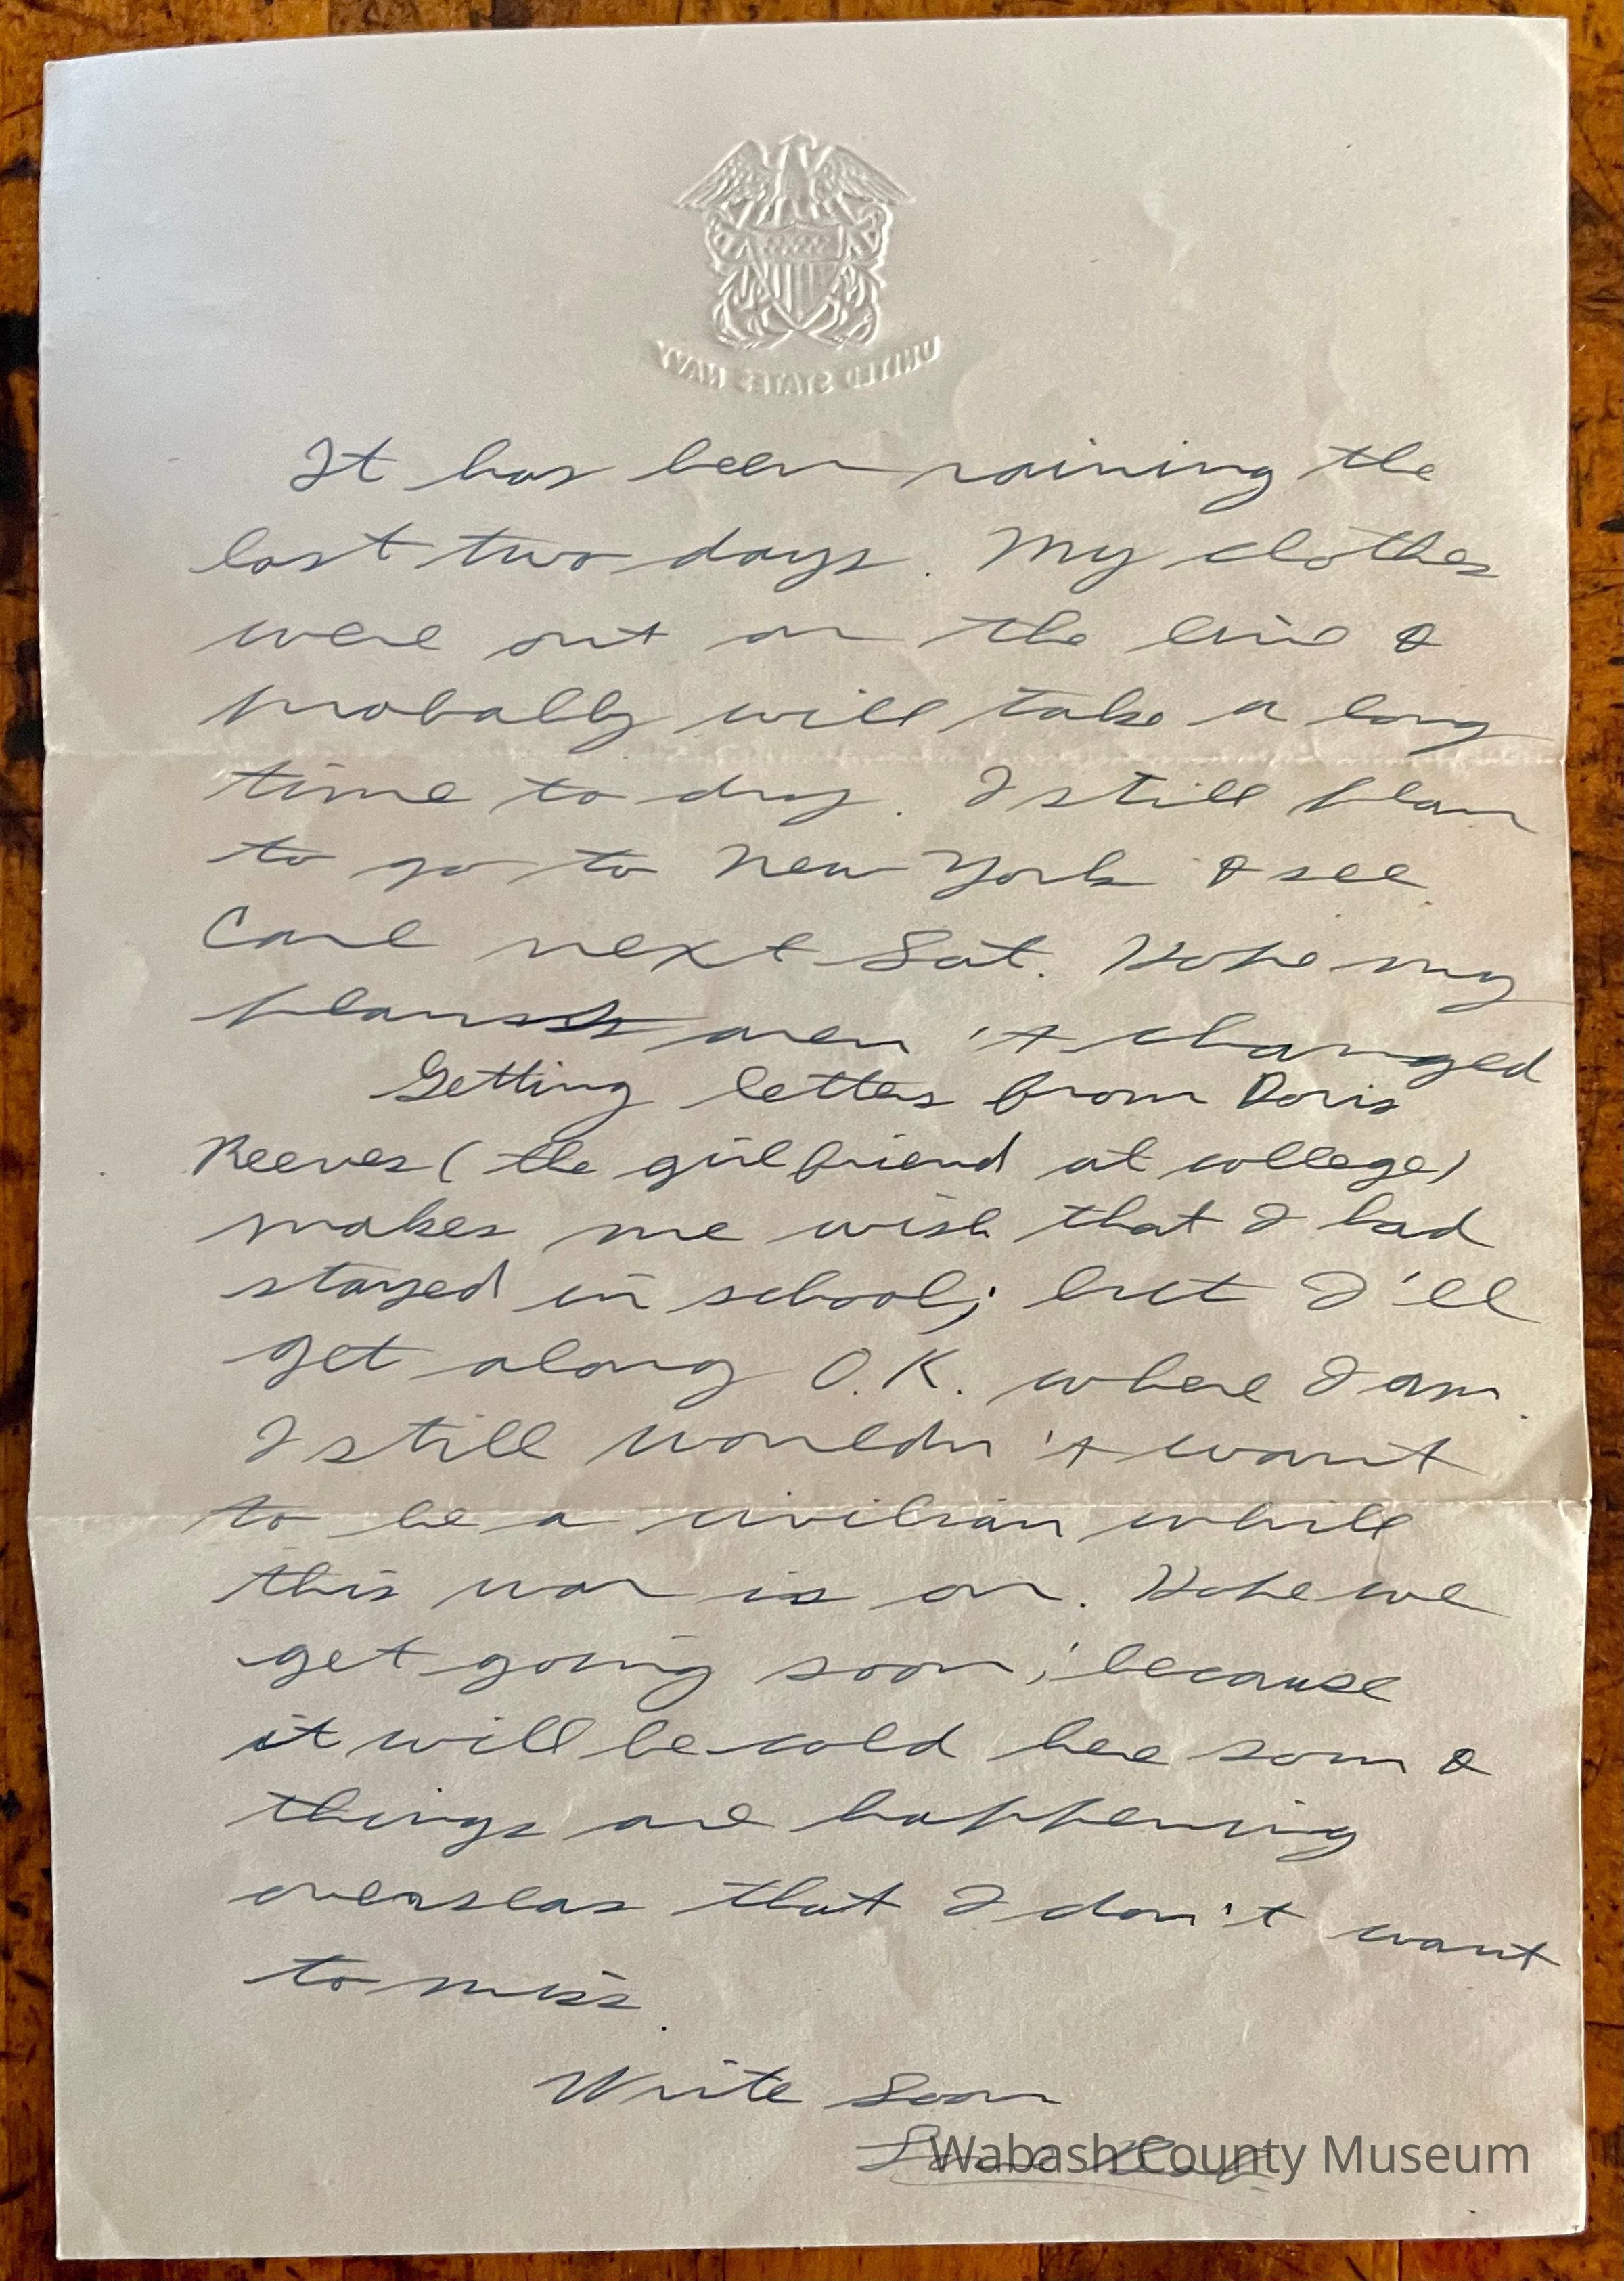 UNITED STATES NAVY
It has been raining the
last two days. My clothes
were out on the line &
probally will take a long
time to dry. I still plan
to go to New York & see
Carl next Sat. Hope my
plans aren't changed
Getting letters from Doris
Reeves (the girlfriend at college)
makes me wish that I had
stayed in school; but I'll
get along O.K. where I am.
I still wouldn't want
to be a civilian while
this war is on. Hope we
get going soon; because
it will be cold here soon &
things are happening
overseas that I don't want
to miss.
Write Soon
Wabash County Museum